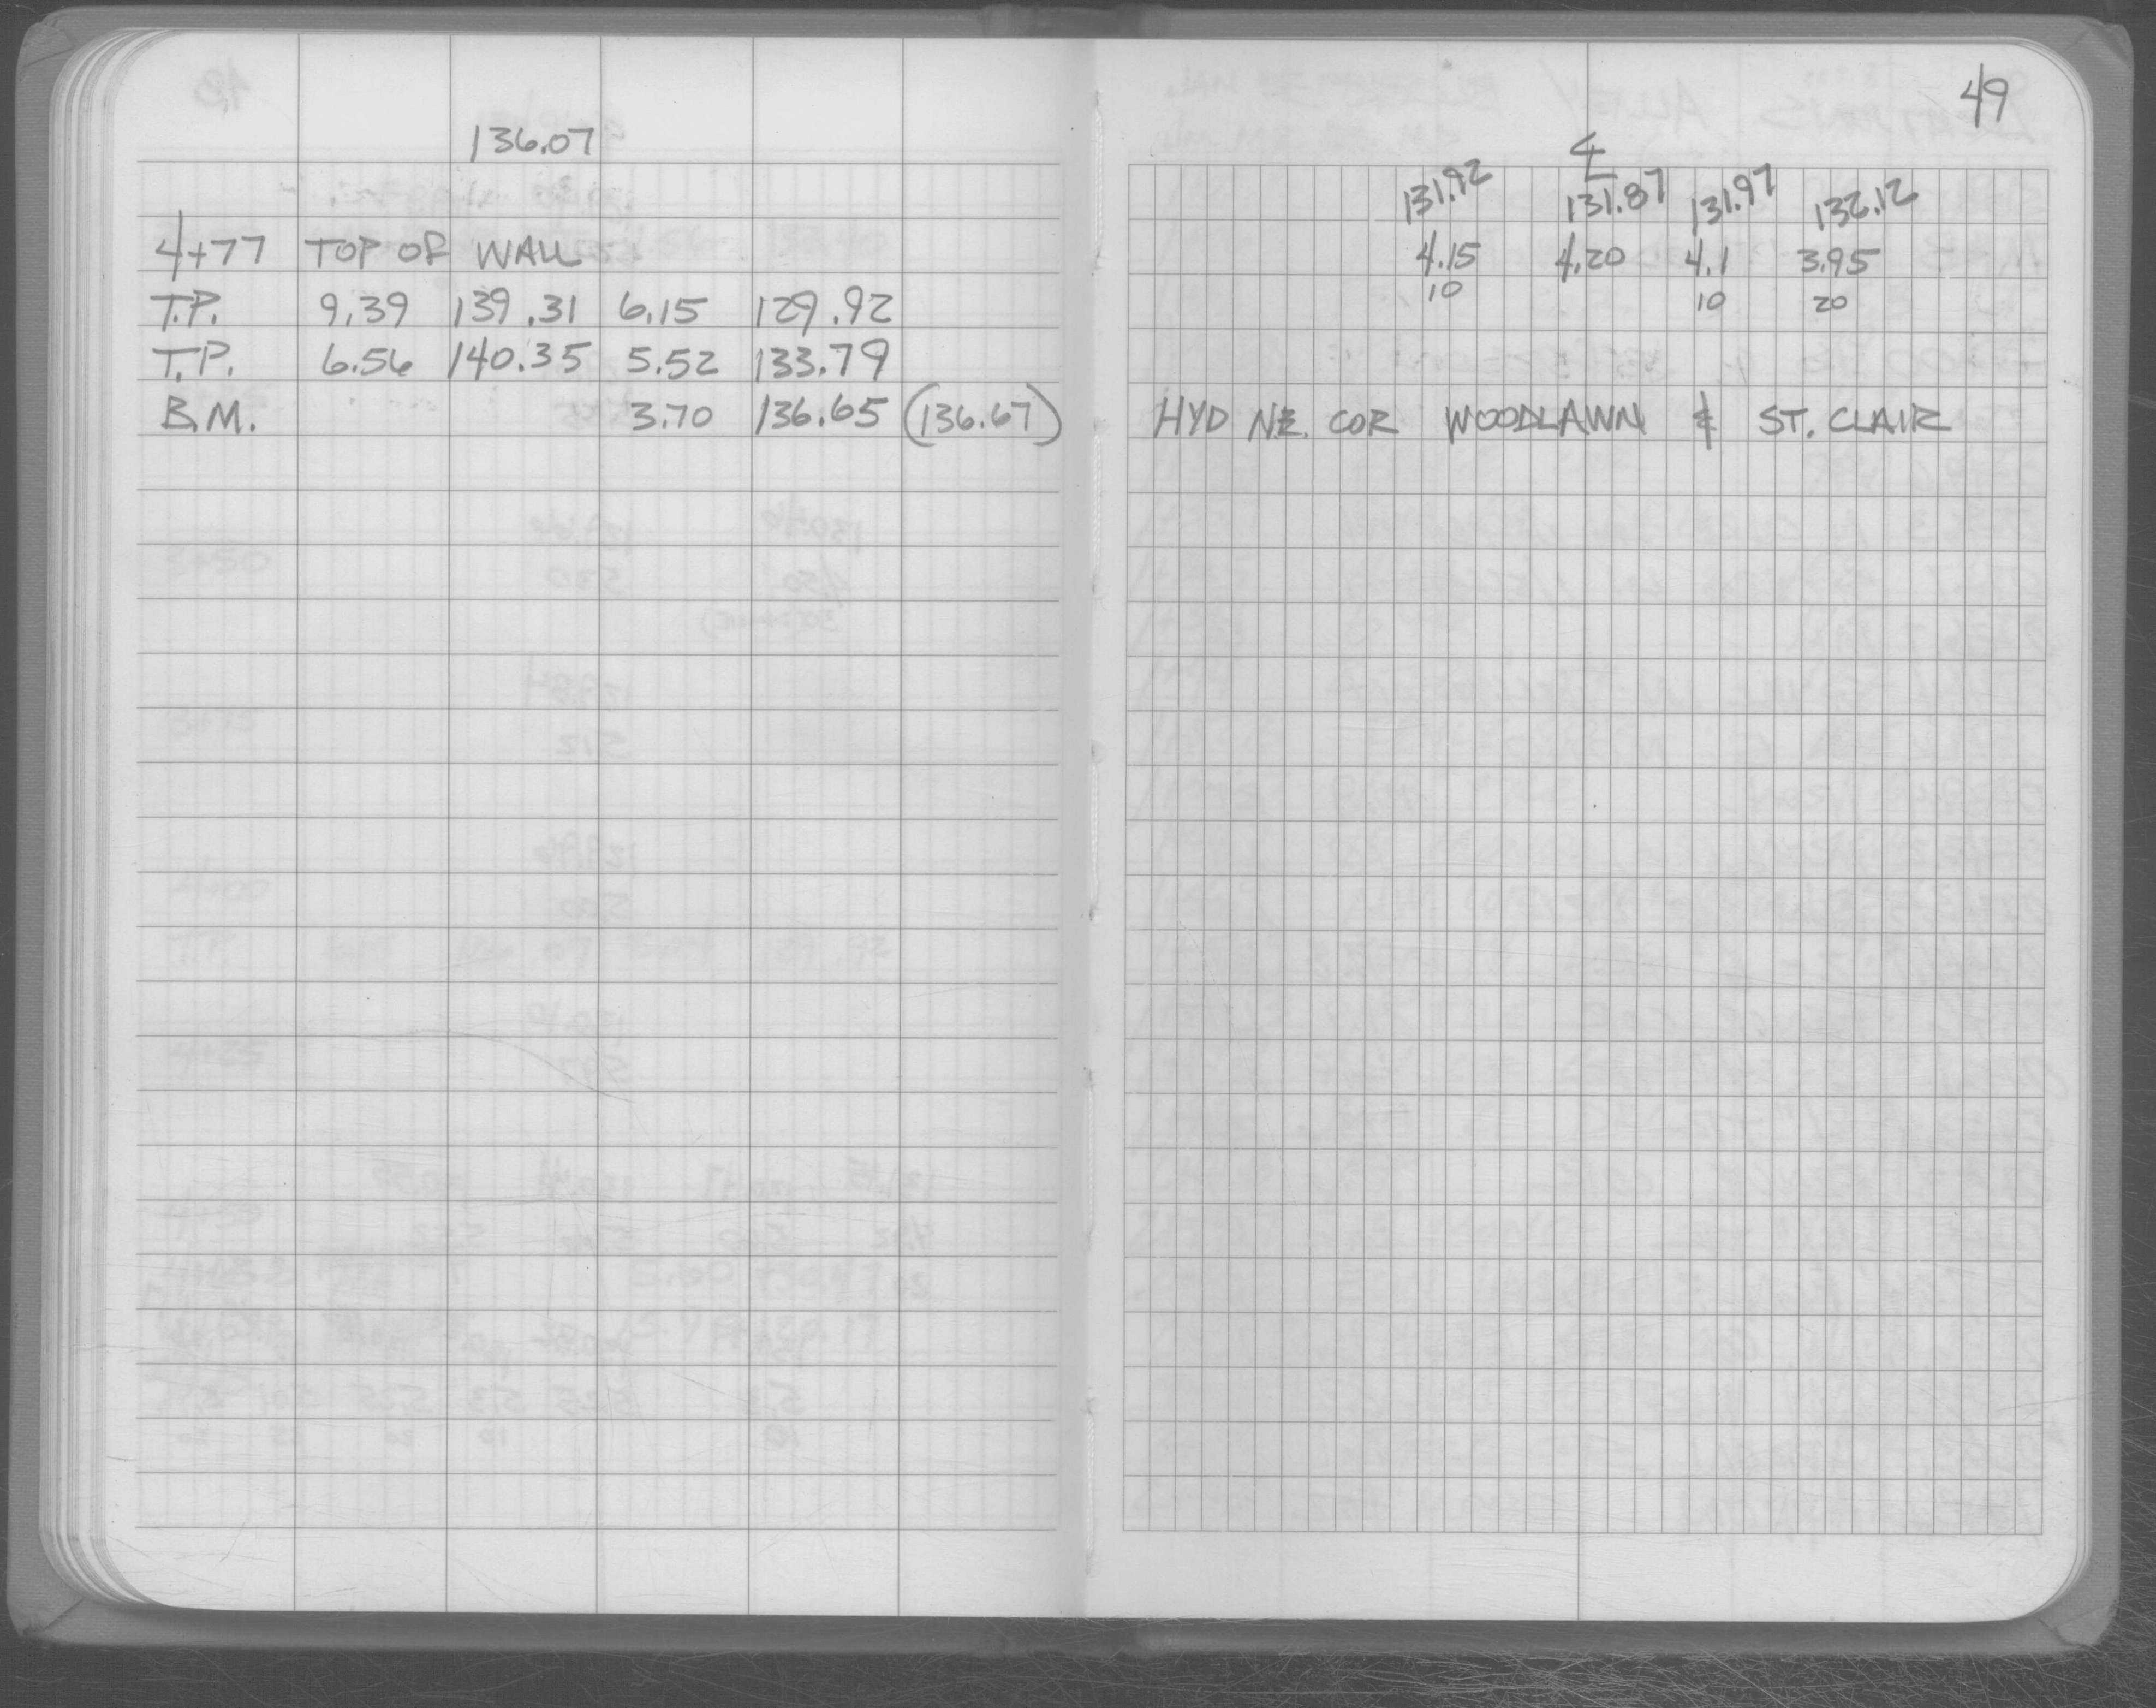 49
136.07
℄
131.92 131.87 131.97 132.12
4+77 TOP OF WALL 4.15 4.20 4.1 3.95
10 10 20
T.P. 9.39 139.31 6.15 129.92
T.P. 6.56 140.35 5.52 133.79
B.M. 3.70 136.65 (136.67) HYD NE. COR WOODLAWN & ST. CLAIR